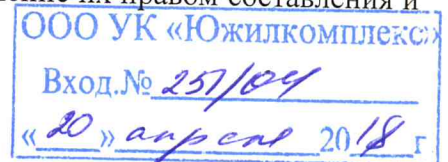 ние их правом составления и
ООО УК «Южилкомплекс»
Вход.№ 251/04
«20» апреля 2018 г